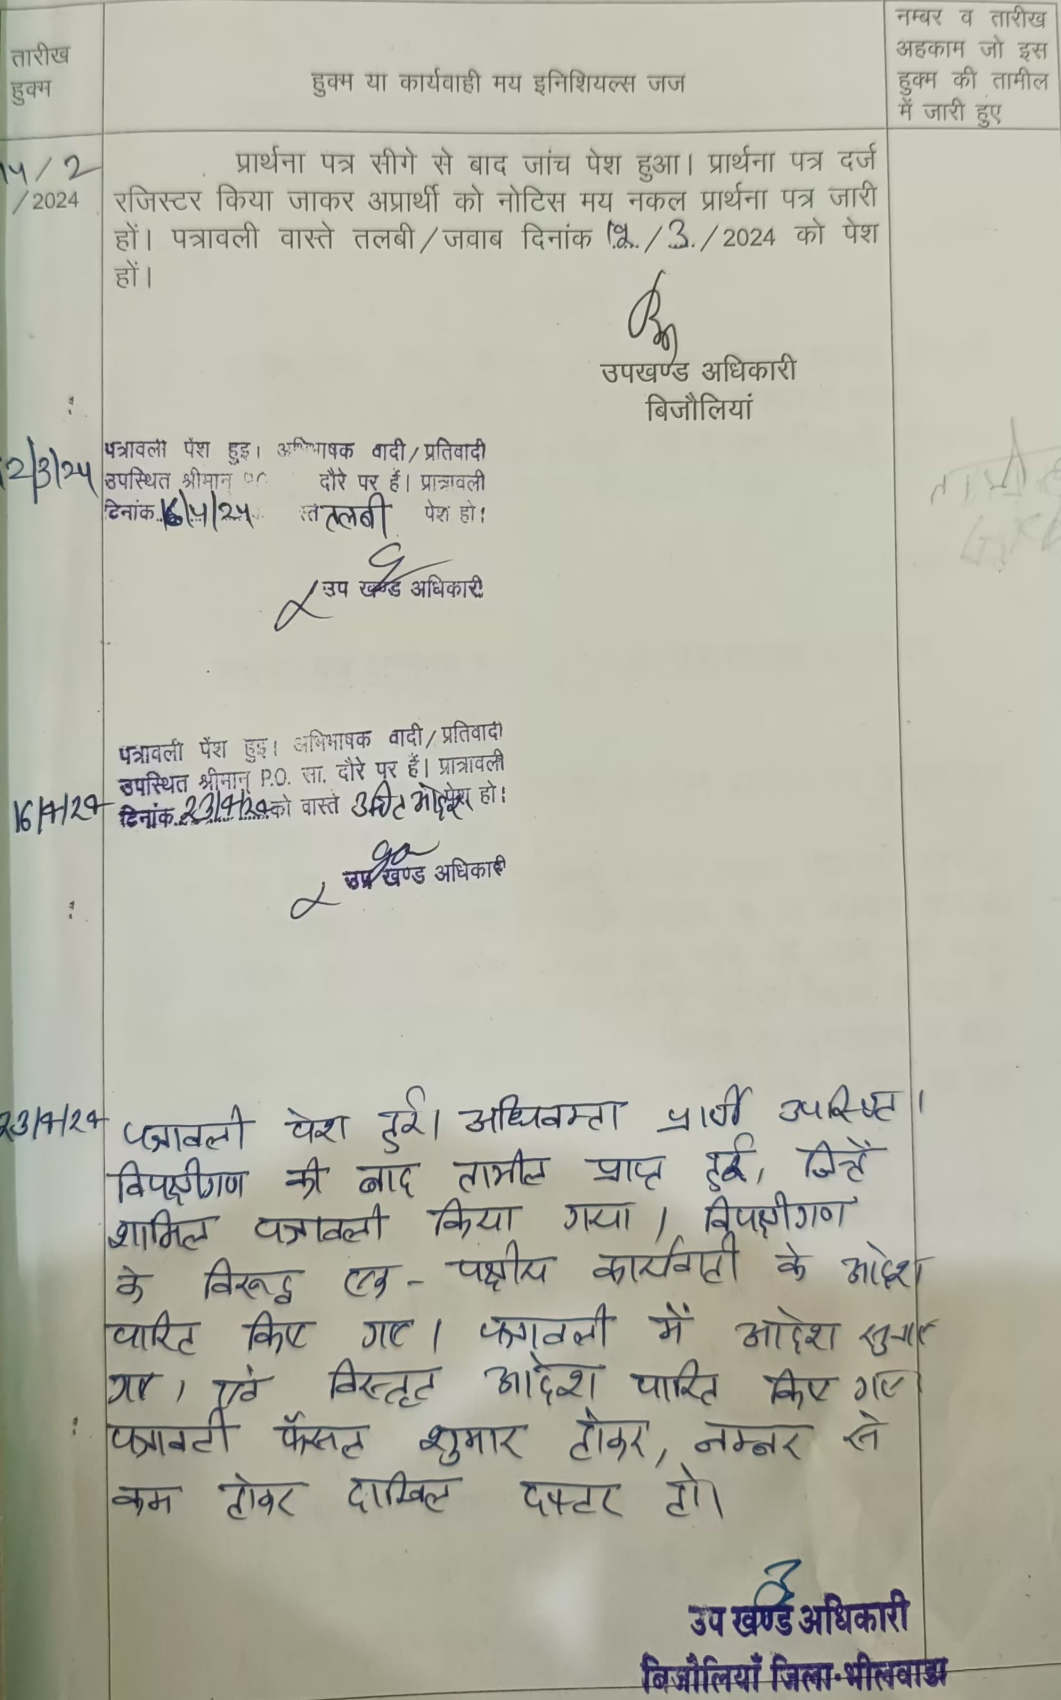 तारीख
हुक्म
हुक्म या कार्यवाही मय इनिशियल्स जज
नम्बर व तारीख
अहकाम जो इस
हुक्म की तामील
में जारी हुए
14/2
/2024
प्रार्थना पत्र सीगे से बाद जांच पेश हुआ। प्रार्थना पत्र दर्ज
रजिस्टर किया जाकर अप्रार्थी को नोटिस मय नकल प्रार्थना पत्र जारी
हों। पत्रावली वास्ते तलबी/जवाब दिनांक 12./3./2024 को पेश
हों।
उपखण्ड अधिकारी
बिजौलियां
12/3/24
पत्रावली पेंश हुइ। अभिभाषक वादी/प्रतिवादी
उपस्थित श्रीमान P.O. दौरे पर हैं। प्रात्रावली
दिनांक 16/4/24 तलबी पेश हो।
उप खण्ड अधिकारी
16/4/24
पत्रावली पेंश हुइ। अभिभाषक वादी/प्रतिवादी
उपस्थित श्रीमान् P.O. सा. दौरे पर हैं। प्रात्रावली
दिनांक 23/4/24 को वास्ते उचित आदेश पेश हो।
उप खण्ड अधिकारी
23/4/24
पत्रावली पेश हुई। अधिवक्ता प्रार्थी उपस्थित।
विपक्षीगण की बाद तामील प्राप्त हुई, जिन्हें
शामिल पत्रावली किया गया। विपक्षीगण
के विरूद्ध एक-पक्षीय कार्यवाही के आदेश
पारित किए गए। पत्रावली में आदेश सुनाए
गए, एवं विस्तृत आदेश पारित किए गए
पत्रावली फैसल शुमार होकर, नम्बर से
कम होकर दाखिल दफ्तर हो।
उप खण्ड अधिकारी
बिजौलियाँ जिला-भीलवाड़ा